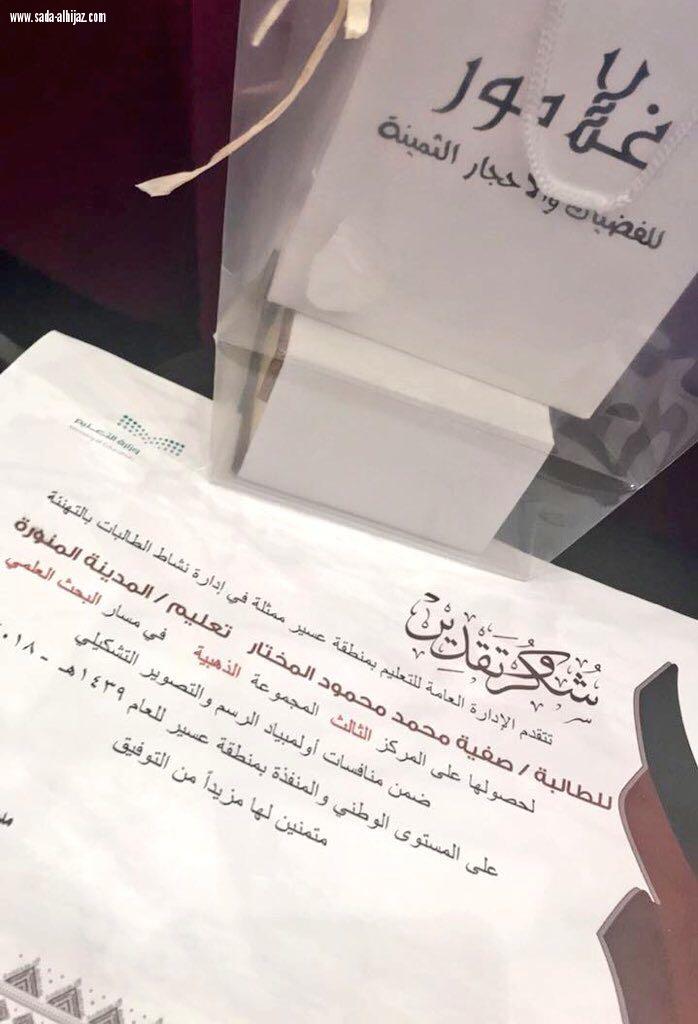 www.sada-alhijaz.com
للفضيات والاحجار الثمينة
وزارة التعليم
Ministry of Education
شكر وتقدير
تتقدم الإدارة العامة للتعليم بمنطقة عسير ممثلة في إدارة نشاط الطالبات بالتهنئة
للطالبة / صفية محمد محمود المختار تعليم / المدينة المنورة
لحصولها على المركز الثالث المجموعة الذهبية في مسار البحث العلمي
ضمن منافسات أولمبياد الرسم والتصوير التشكيلي
على المستوى الوطني والمنفذة بمنطقة عسير للعام ١٤٣٩هـ - ٢٠١٨
متمنين لها مزيداً من التوفيق